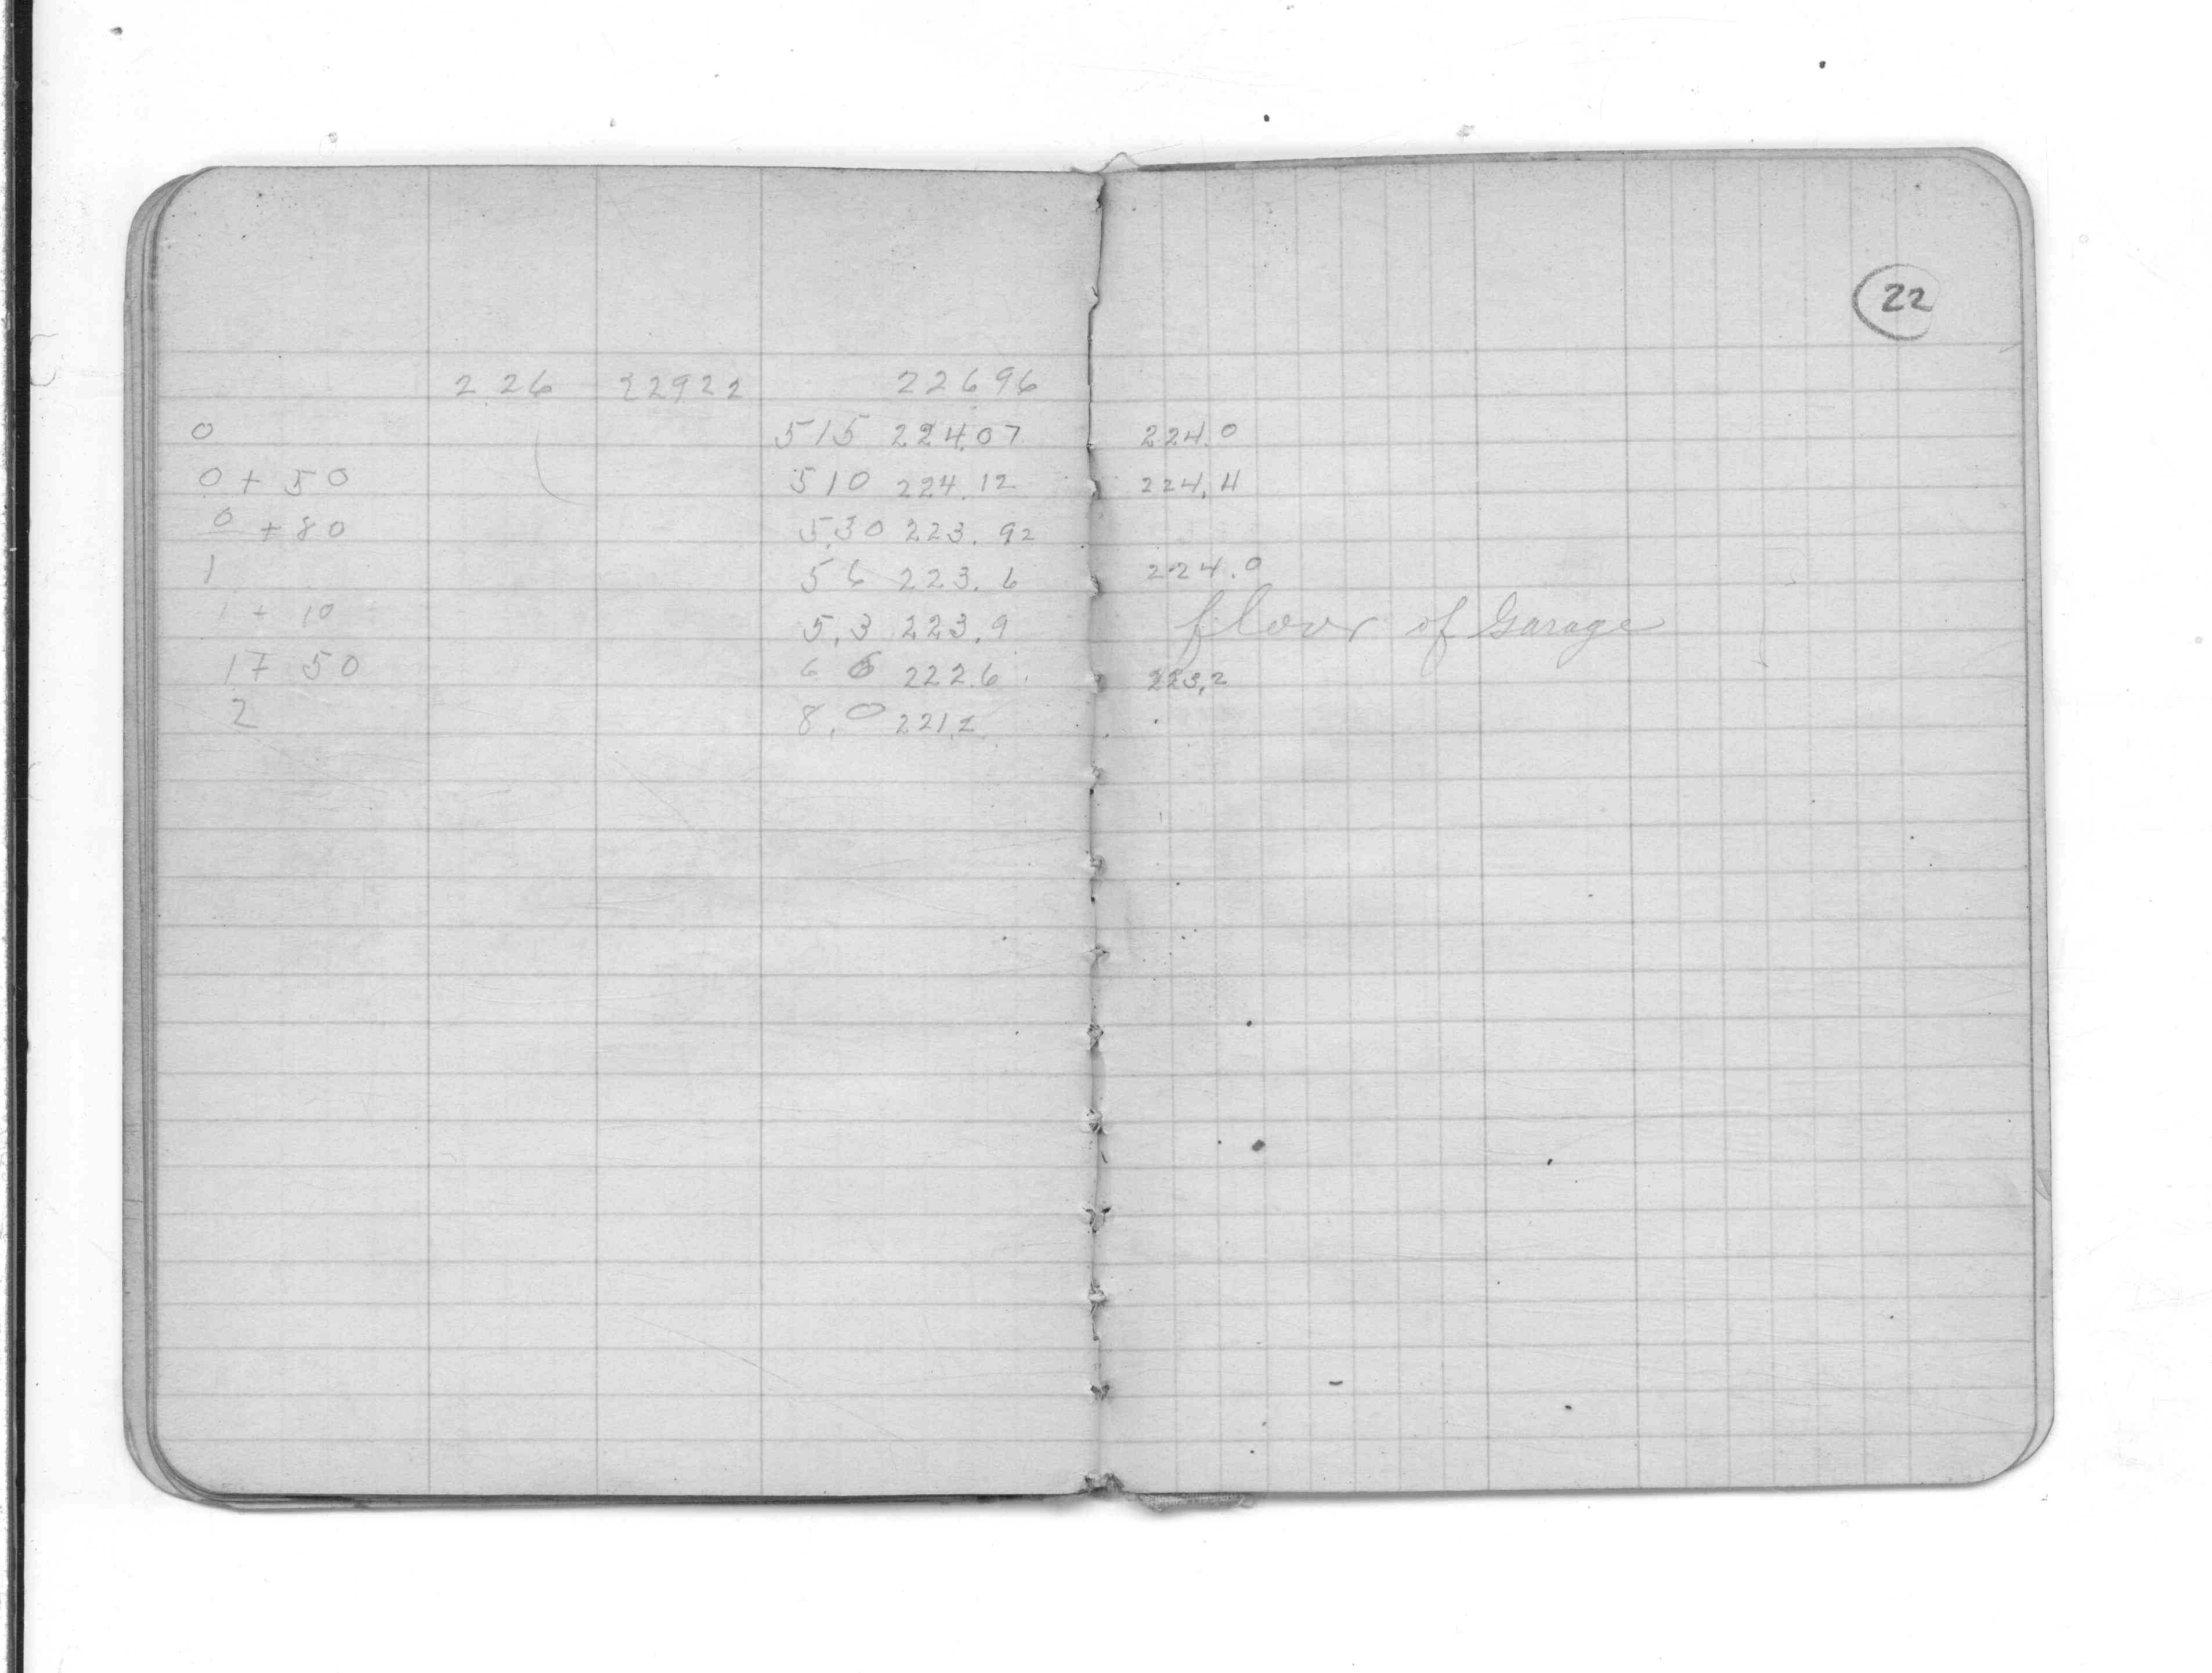 22
2 26 22922 22696
0 515 224.07 224.0
0 + 50 510 224.12 224.4
0 + 80 5.30 223.92
1 5 6 223.6 224.0
1 + 10 5.3 223.9 floor of Garage
1+ 50 6 6 222.6 223.2
2 8.0 221.2